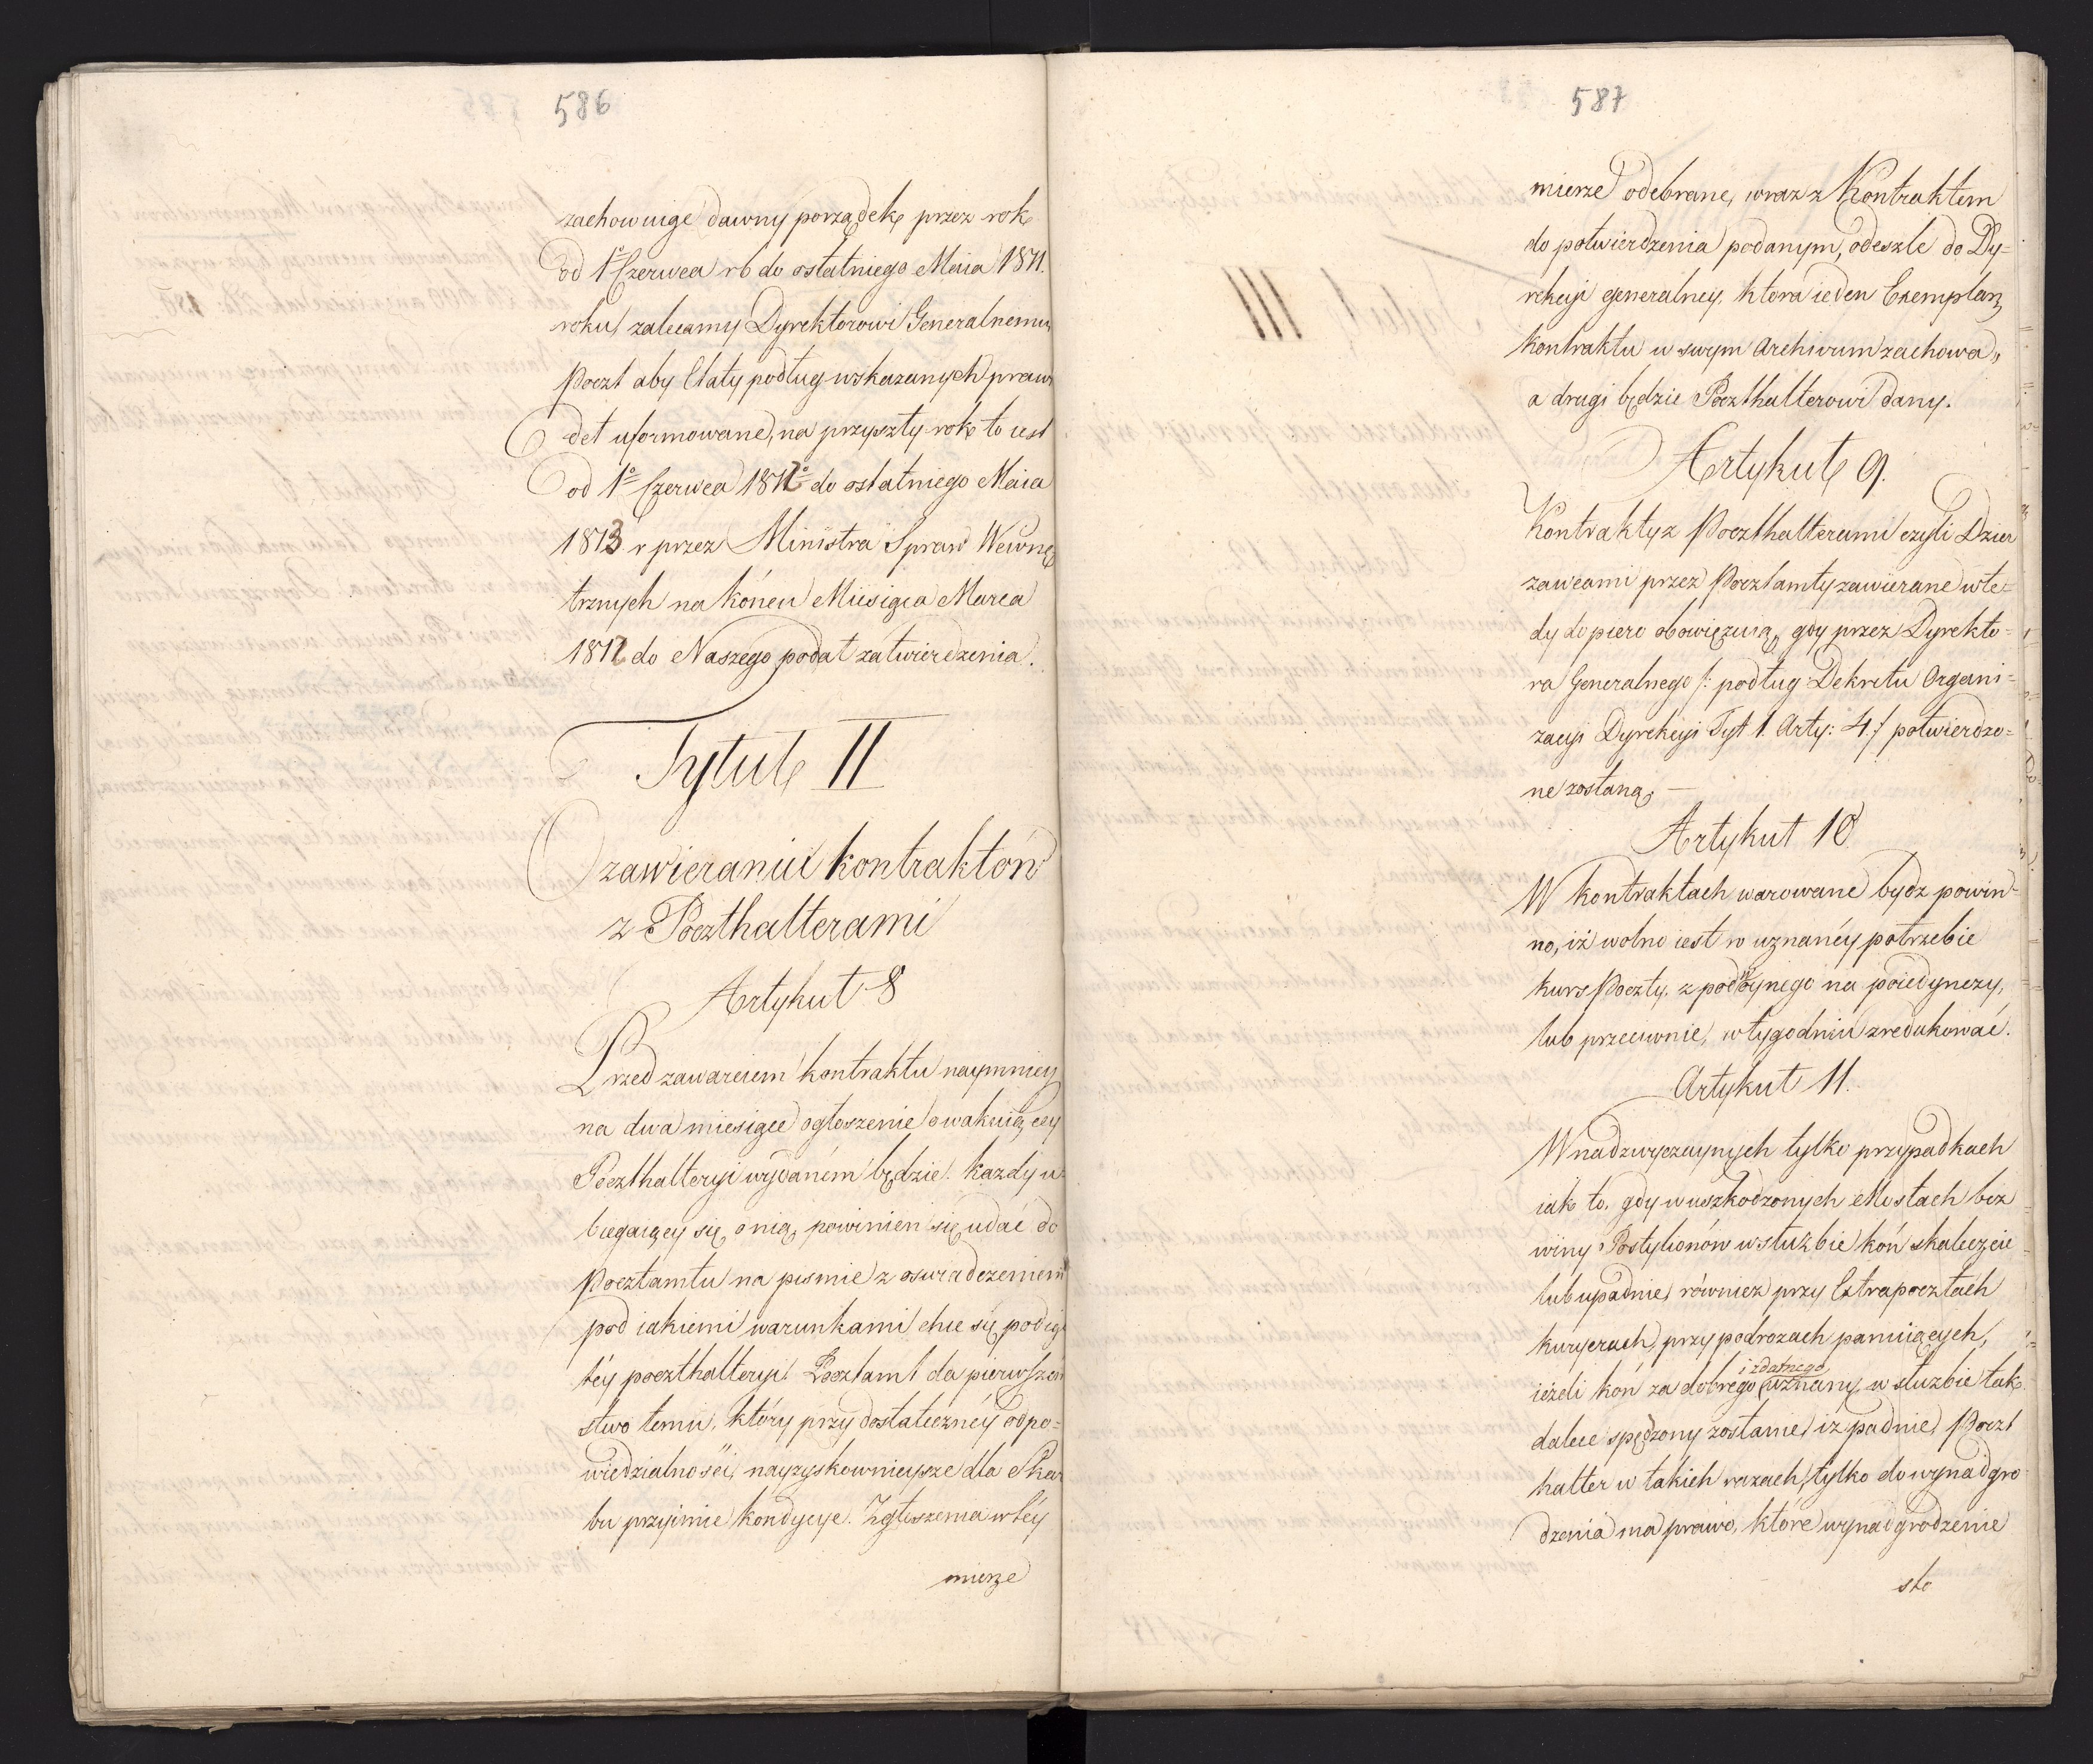 586
zachowuiąc dawny porządek przez rok
od 1º Czerwca rb do ostatniego Maia 1811.
roku, zalecamy Dyrektorowi Generalnemu
Poczt aby Etaty podług wskazanych prawi
deł uformowane, na przyszły rok to iest
od 1º Czerwca 1812º do ostatniego Maia
1813 r przez Ministra Spraw Wewnę
trznych na końcu Miesiąca Marca
1812 do Naszego podał zatwierdzenia.
Tytuł II
O zawieraniu kontraktów
z Poczthalterami
Artykuł 8
Przed zawarciem kontraktu naymniey
na dwa miesiące ogłoszenie o wakuiącey
Poczthalteryi wydaném będzie. Kazdy u-
biegaiący się o nią, powinien się udać do
Pocztamtu na pismie z oswiadczeniem
pod iakiemi warunkami chce się podiąć
téy poczthalteryi. Pocztamt da pierwszeń
stwo temu, który przy dostateczney odpo=
wiedzialności, nayzyskownieysze dla Skar
bu przyimie kondycye. Zgłoszenia w téy
mierze
587
mierze odebrane, wraz z Kontraktem
do potwierdzenia podanym, odeszle do Dy=
rekcyi generalney, ktora ieden Exemplarz
kontraktu w swym Archivum zachowa,
a drugi będzie Poczthalterowi dany.
Artykuł 9.
Kontrakty z Poczthalterami czyli Dzier
zawcami przez Pocztamty zawierane wte=
dy dopiero obowięzuią, gdy przez Dyrekto=
ra Generalnego /: podług Dekretu Organi=
zacyi Dyrekcyi Tyt 1. Arty: 4 :/ potwierdzo=
ne zostaną. —
Artykuł 10
W kontraktach warowane bydz powin=
no, iż wolno iest w uznanéy potrzebie
kurs Poczty, z podwóynego na poiedynczy,
lub przeciwnie, w tygodniu zredukować.
Artykuł 11.
W nadzwyczaynych tylko przypadkach
iak to, gdy w uszkodzonych Mostach bez
winy Postylionów w służbie koń skaleczeie
lub upadnie, równiez przy Extrapocztach
kuryerach, przy podrozach panuiących,
i zdatnego
ieżeli koń za dobrego uznany w służbie tak
dalece spędzony zostanie, iz padnie, Poczt
halter w takich razach, tylko do wynadgro
dzenia ma prawo, które wynadgrodzenie
sto